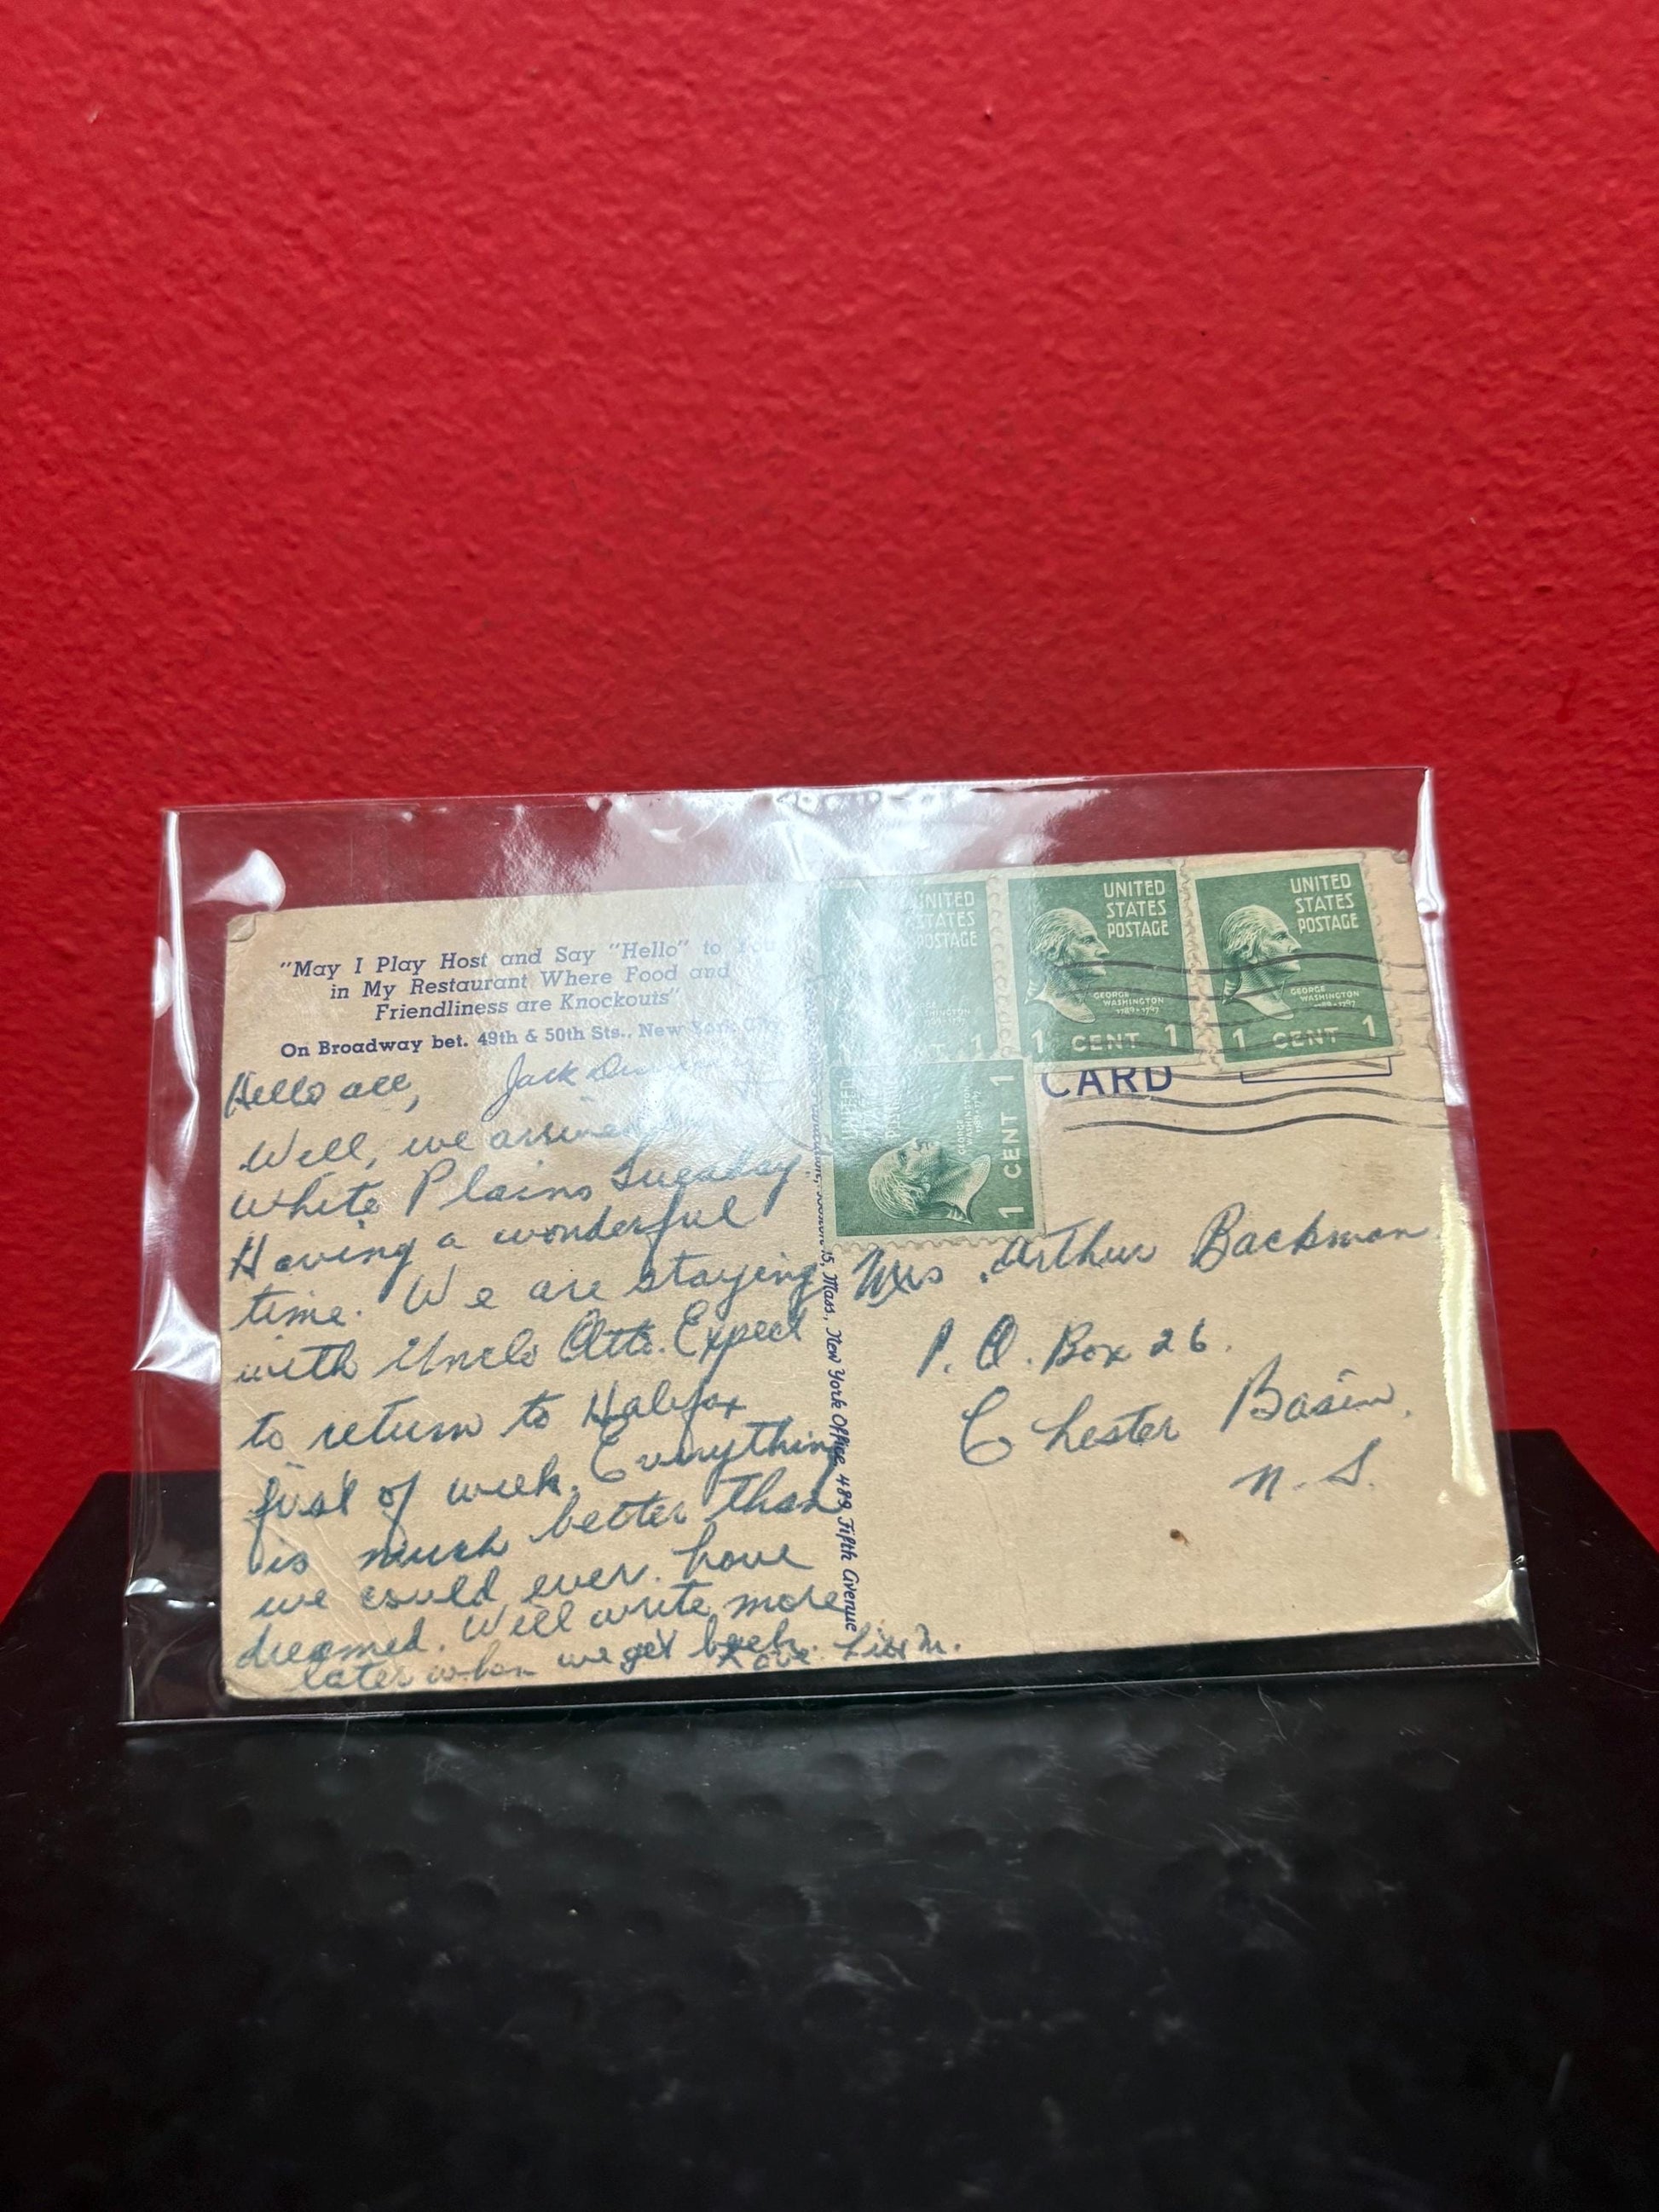 "May I Play Host and Say "Hello" to You
in My Restaurant Where Food and
Friendliness are Knockouts"
On Broadway bet. 49th & 50th Sts., New York City
Jack
Hello all,
Well, we arrived
White Plains Tuesday
Having a wonderful
time. We are staying
with Uncle Otto. Expect
to return to Halifax
first of week. Everything
is much better than
we could ever have
dreamed. Will write more
later when we get back.
Love
15, Mass., New York Office, 489 Fifth Avenue
UNITED
STATES
POSTAGE
1 CENT 1
UNITED
STATES
POSTAGE
GEORGE
WASHINGTON
1789-1797
1 CENT 1
UNITED
STATES
POSTAGE
GEORGE
WASHINGTON
1789-1797
1 CENT 1
UNITED
STATES
POSTAGE
GEORGE
WASHINGTON
1789-1797
1 CENT 1
CARD
Mrs. Arthur Backman
P. O. Box 26.
Chester Basin,
N. S.